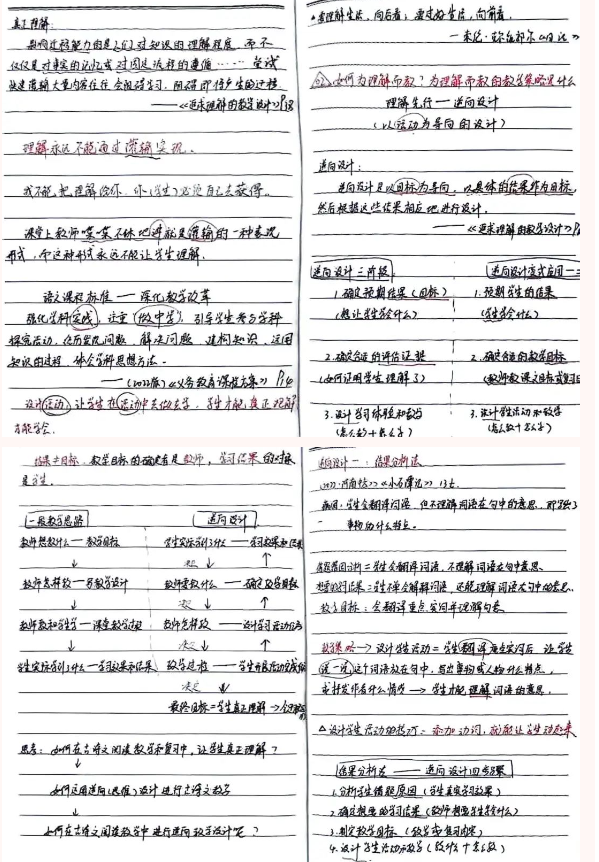 真正理解:
影响迁移能力的是人们对知识的理解程度,而不
仅仅是对事实的记忆或对固定流程的遵循……尝试
快速灌输大量内容往往会阻碍学习,阻碍即将产生的迁移
——《追求理解的教学设计》
理解永远不能通过灌输实现.
我不能把理解给你,你(学生)必须自己去获得。
课堂上教师喋喋不休地讲就是灌输的一种表现
形式,而这种形式永远不能让学生理解.
语文课程标准——深化教学改革
强化学科实践,注重"做中学",引导学生参与学科
探究活动,经历发现问题、解决问题、建构知识、运用
知识的过程,体会学科思想方法。
——(2022版)《义务教育课程方案》
设计活动,让学生在活动中去做去学,学生才能真正理解
才能学会.
要理解生活,向后看;要过好生活,向前看.
如何为理解而教?为理解而教的教学策略是什么
理解先行——逆向设计
(以活动为导向的设计)
逆向设计:
逆向设计是以目标为导向,以具体的结果作为目标,
然后根据这些结果相应地进行设计.
——《追求理解的教学设计》
逆向设计三阶段
1.确定预期结果(目标)
(想让学生学会什么)
2.确定合适的评估证据
(如何证明学生理解了)
3.设计学习体验和教学
(怎么教+怎么学)
逆向设计变式应用一:
1.预期学生的结果
(学生学会什么)
2.确定合适的教学目标
3.设计学生活动和教学
(怎么教+怎么学)
结果≠目标,教学目标的确定者是教师,学习结果的对象
是学生.
一般教学思路
教师想教什么——教学目标
↓
教师怎样教——写教学设计
↓
教师教和学生学——课堂教学过程
↓
学生实际学到了什么——学习效果和结果
逆向设计
学生实际学到了什么——学习效果和结果
决定 ↓ ↑
教师要教什么——确定教学目标
决定 ↓ ↑
教师怎样教——设计学习活动任务
决定 ↓ ↑
教学过程——学生开展活动完成任务
决定 ↓
最终目标=学生真正理解→
思考:如何在古诗文阅读教学和复习中,让学生真正理解?
↓
如何运用逆向(思维)设计进行古诗文教学
↓
如何在古诗文阅读教学中进行逆向教学设计呢?
逆向设计一:结果分析法
2022·河南坊《小石潭记》13上.
病因:学生会翻译词语,但不理解词语在句中的意思,
事物的什么特点。
错题原因分析=学生会翻译词语,不理解词语在句中意思.
想要的结果=学生不单会解释词语,还能理解词语在句中的意思.
教学目标:会翻译重点实词并理解句意
教学策略→设计学生活动=学生翻译重点实词后,让学生
说一说这个词语放在句中,写出事物或人物什么特点,
或抒发作者什么情感→学生才能理解词语的意思.
△设计学生活动的技巧=添加动词,就能让学生动起来
结果分析法——逆向设计四步骤
1.分析学生错题原因(学生真实学习效果)
2.确定想要的学习结果(教师想要学生学什么)
3.制定教学目标(教学或复习内容)
4.设计学生活动和教学(教什么+怎么教)